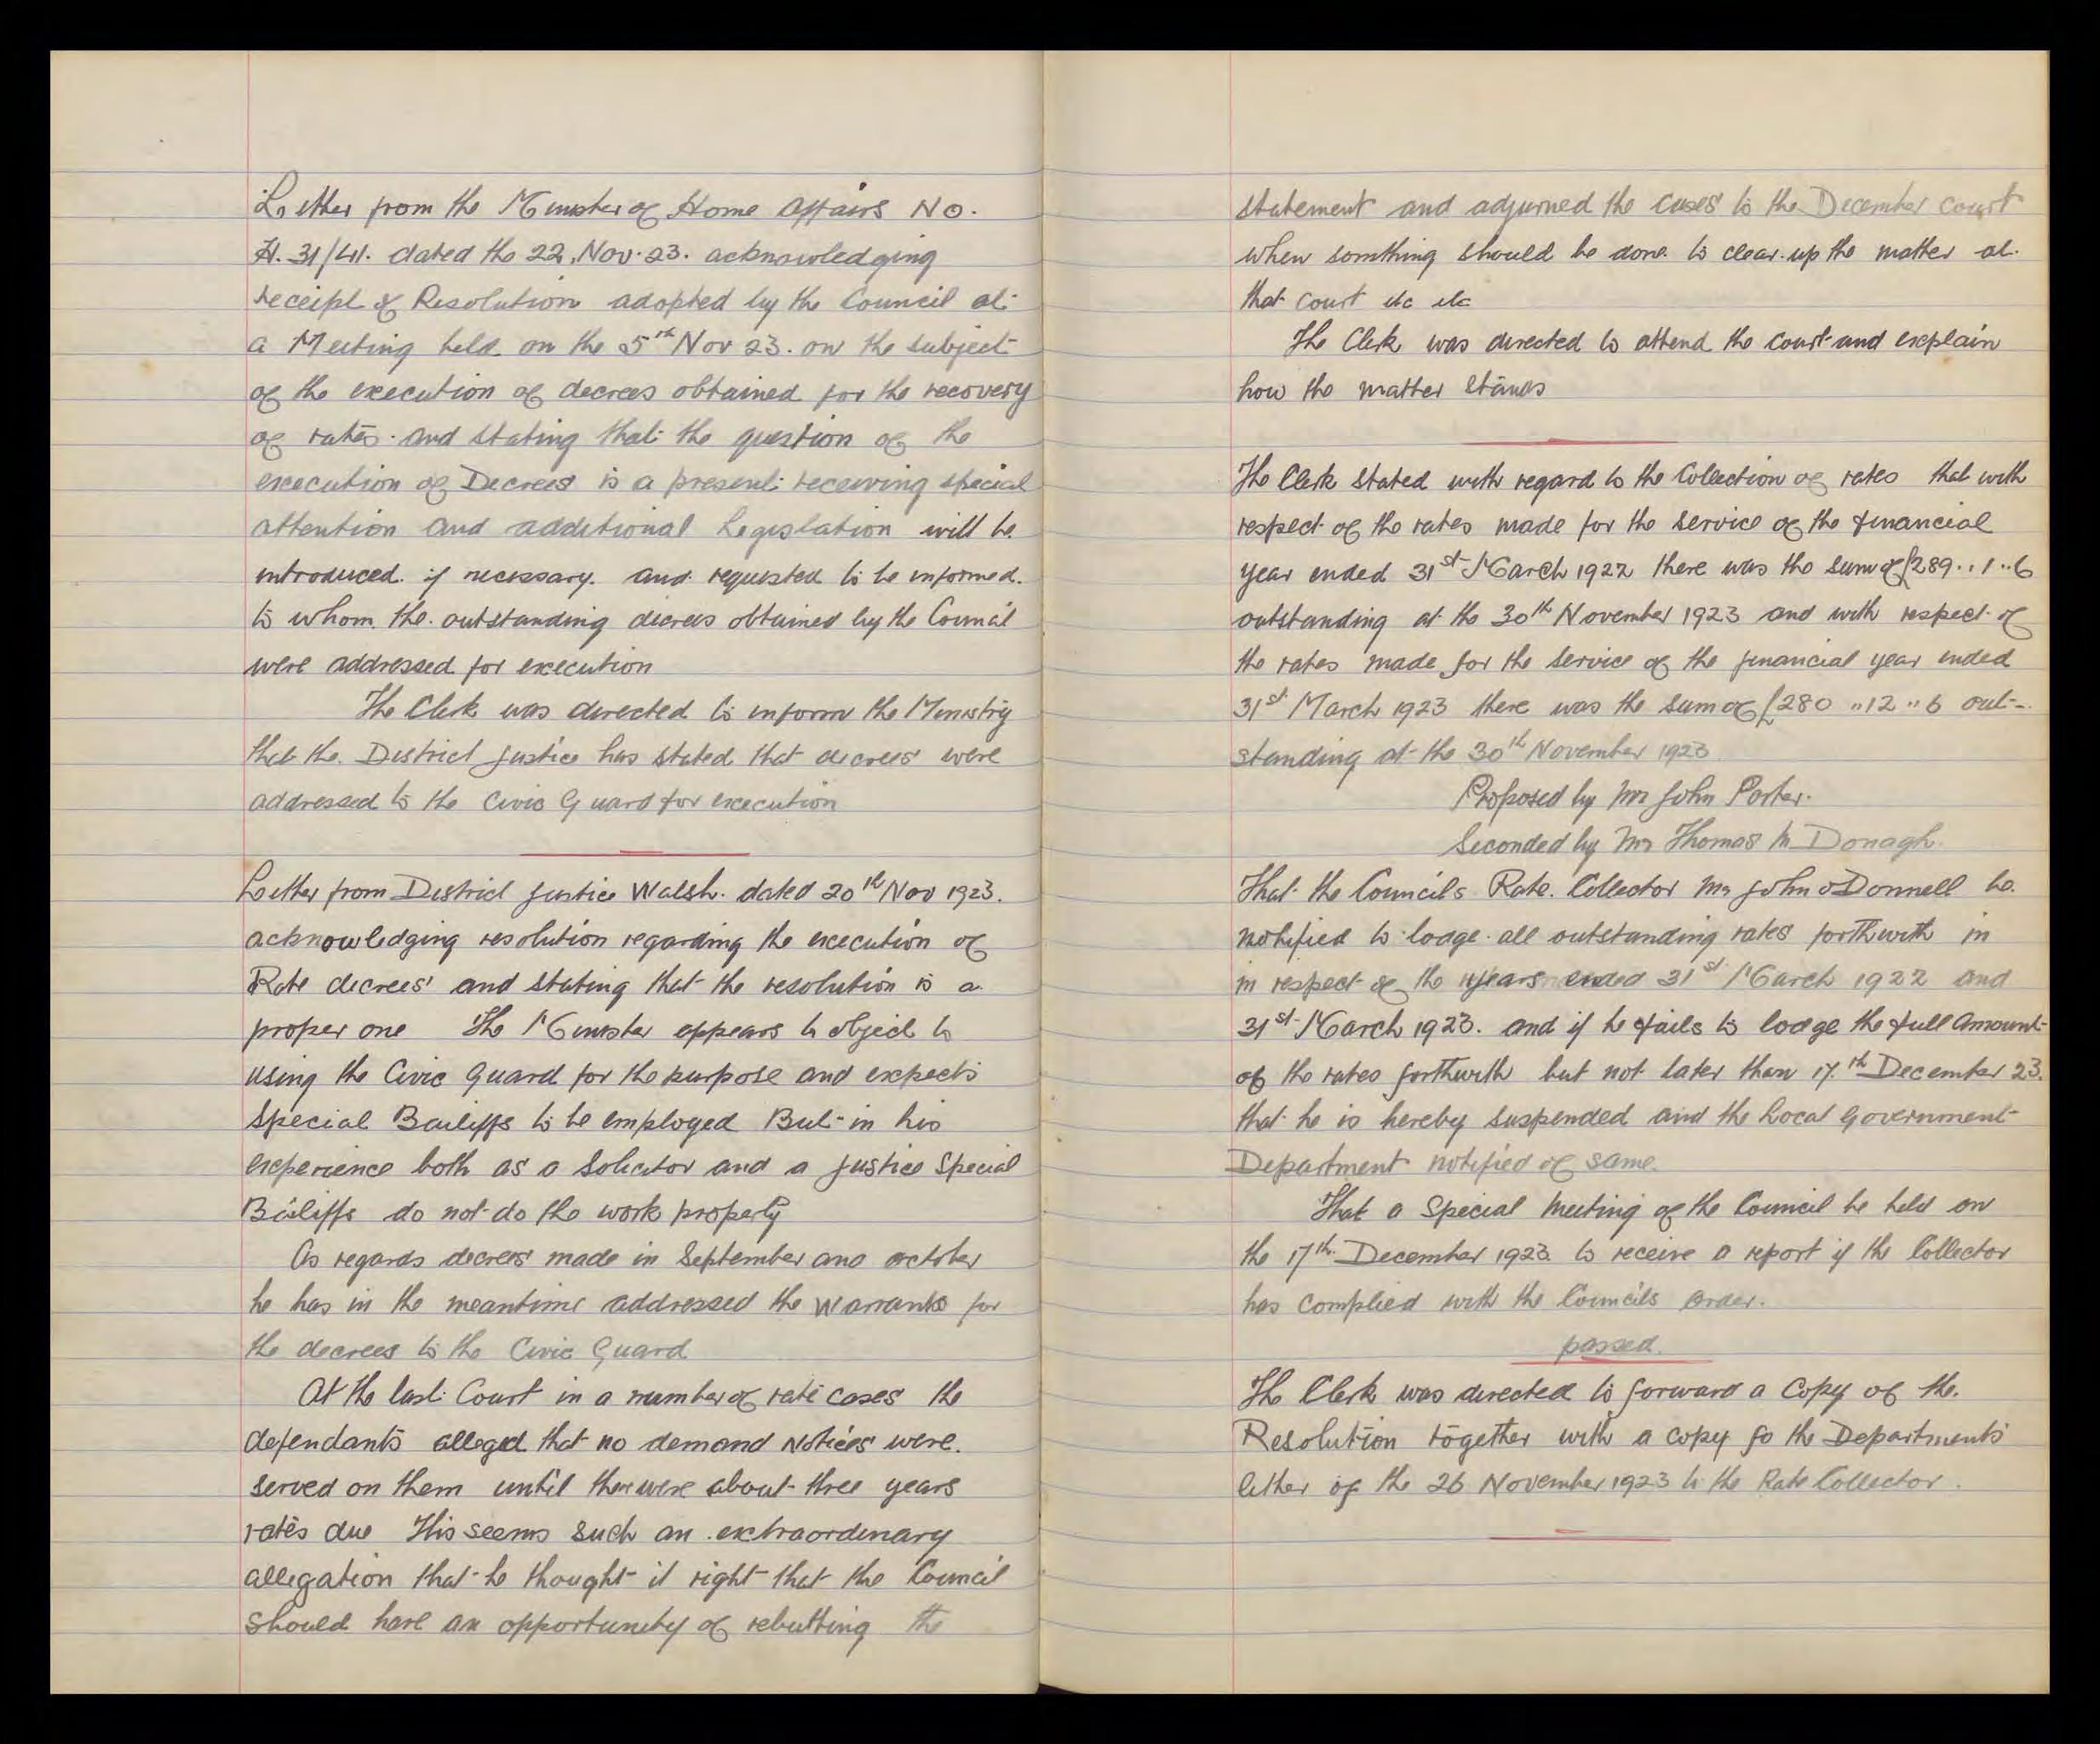 Letter from the Minister of Home Affairs No.
H. 31/41. dated the 22. Nov. 23. acknowledging
receipt of Resolution adopted by the Council at
a Meeting held on the 5th Nov 23. on the subject
of the execution of decrees obtained for the recovery
of rates. and stating that the question of the
execution of Decrees is a present receiving special
attention and additional Legislation will be
introduced. if necessary. and requested to be informed.
to whom the outstanding decrees obtained by the Council
were addressed for execution
The Clerk was directed to inform the Ministry
that the District Justice has stated that decrees were
addressed to the Civic Guard for execution
Letter from District Justice Walsh. dated 20th Nov 1923.
acknowledging resolution regarding the execution of
Rate decrees and stating that the resolution is a
proper one The Minister appears to object to
using the Civic Guard for the purpose and expects
Special Bailiffs to be employed But in his
experience both as a Solicitor and a Justice Special
Bailiffs do not do the work properly
As regards decrees made in September and October
he has in the meantime addressed the Warrants for
the decrees to the Civic Guard
At the last Court in a number of rate cases the
defendants alleged that no demand Notices were.
served on them until there were about three years
rates due This seems such an extraordinary
allegation that he thought it right that the Council
should have an opportunity of rebutting the
statement and adjurned the cases to the December Court
when somthing should be done to clear up the matter at
that Court etc etc
The Clerk was directed to attend the court and explain
how the matter stands
The Clerk stated with regard to the Collection of rates that with
respect of the rates made for the service of the financial
year ended 31st March 1922 there was the sum of £289..1..6
outstanding at the 30th November 1923 and with respect of
the rates made for the service of the financial year ended
31st March 1923 there was the sum of £280 "12 "6 out-
standing at the 30th November 1923
Proposed by Mr John Porter.
Seconded by Mr Thomas Mc Donagh.
That the Councils Rate. Collector Mr John O Donnell be
notified to lodge all outstanding rates forthwith in
in respect of the years ended 31st March 1922 and
31st March 1923. and if he fails to lodge the full Amount
of the rates forthwith but not later than 17th December 23.
that he is hereby suspended and the Local Government
Department notified of same.
That a Special Meeting of the Council be held on
the 17th December 1923 to receive a report if the Collector
has complied with the Councils order.
passed.
The Clerk was directed to forward a copy of the.
Resolution together with a copy fo the Departments
letter of the 26 November 1923 to the Rate Collector.